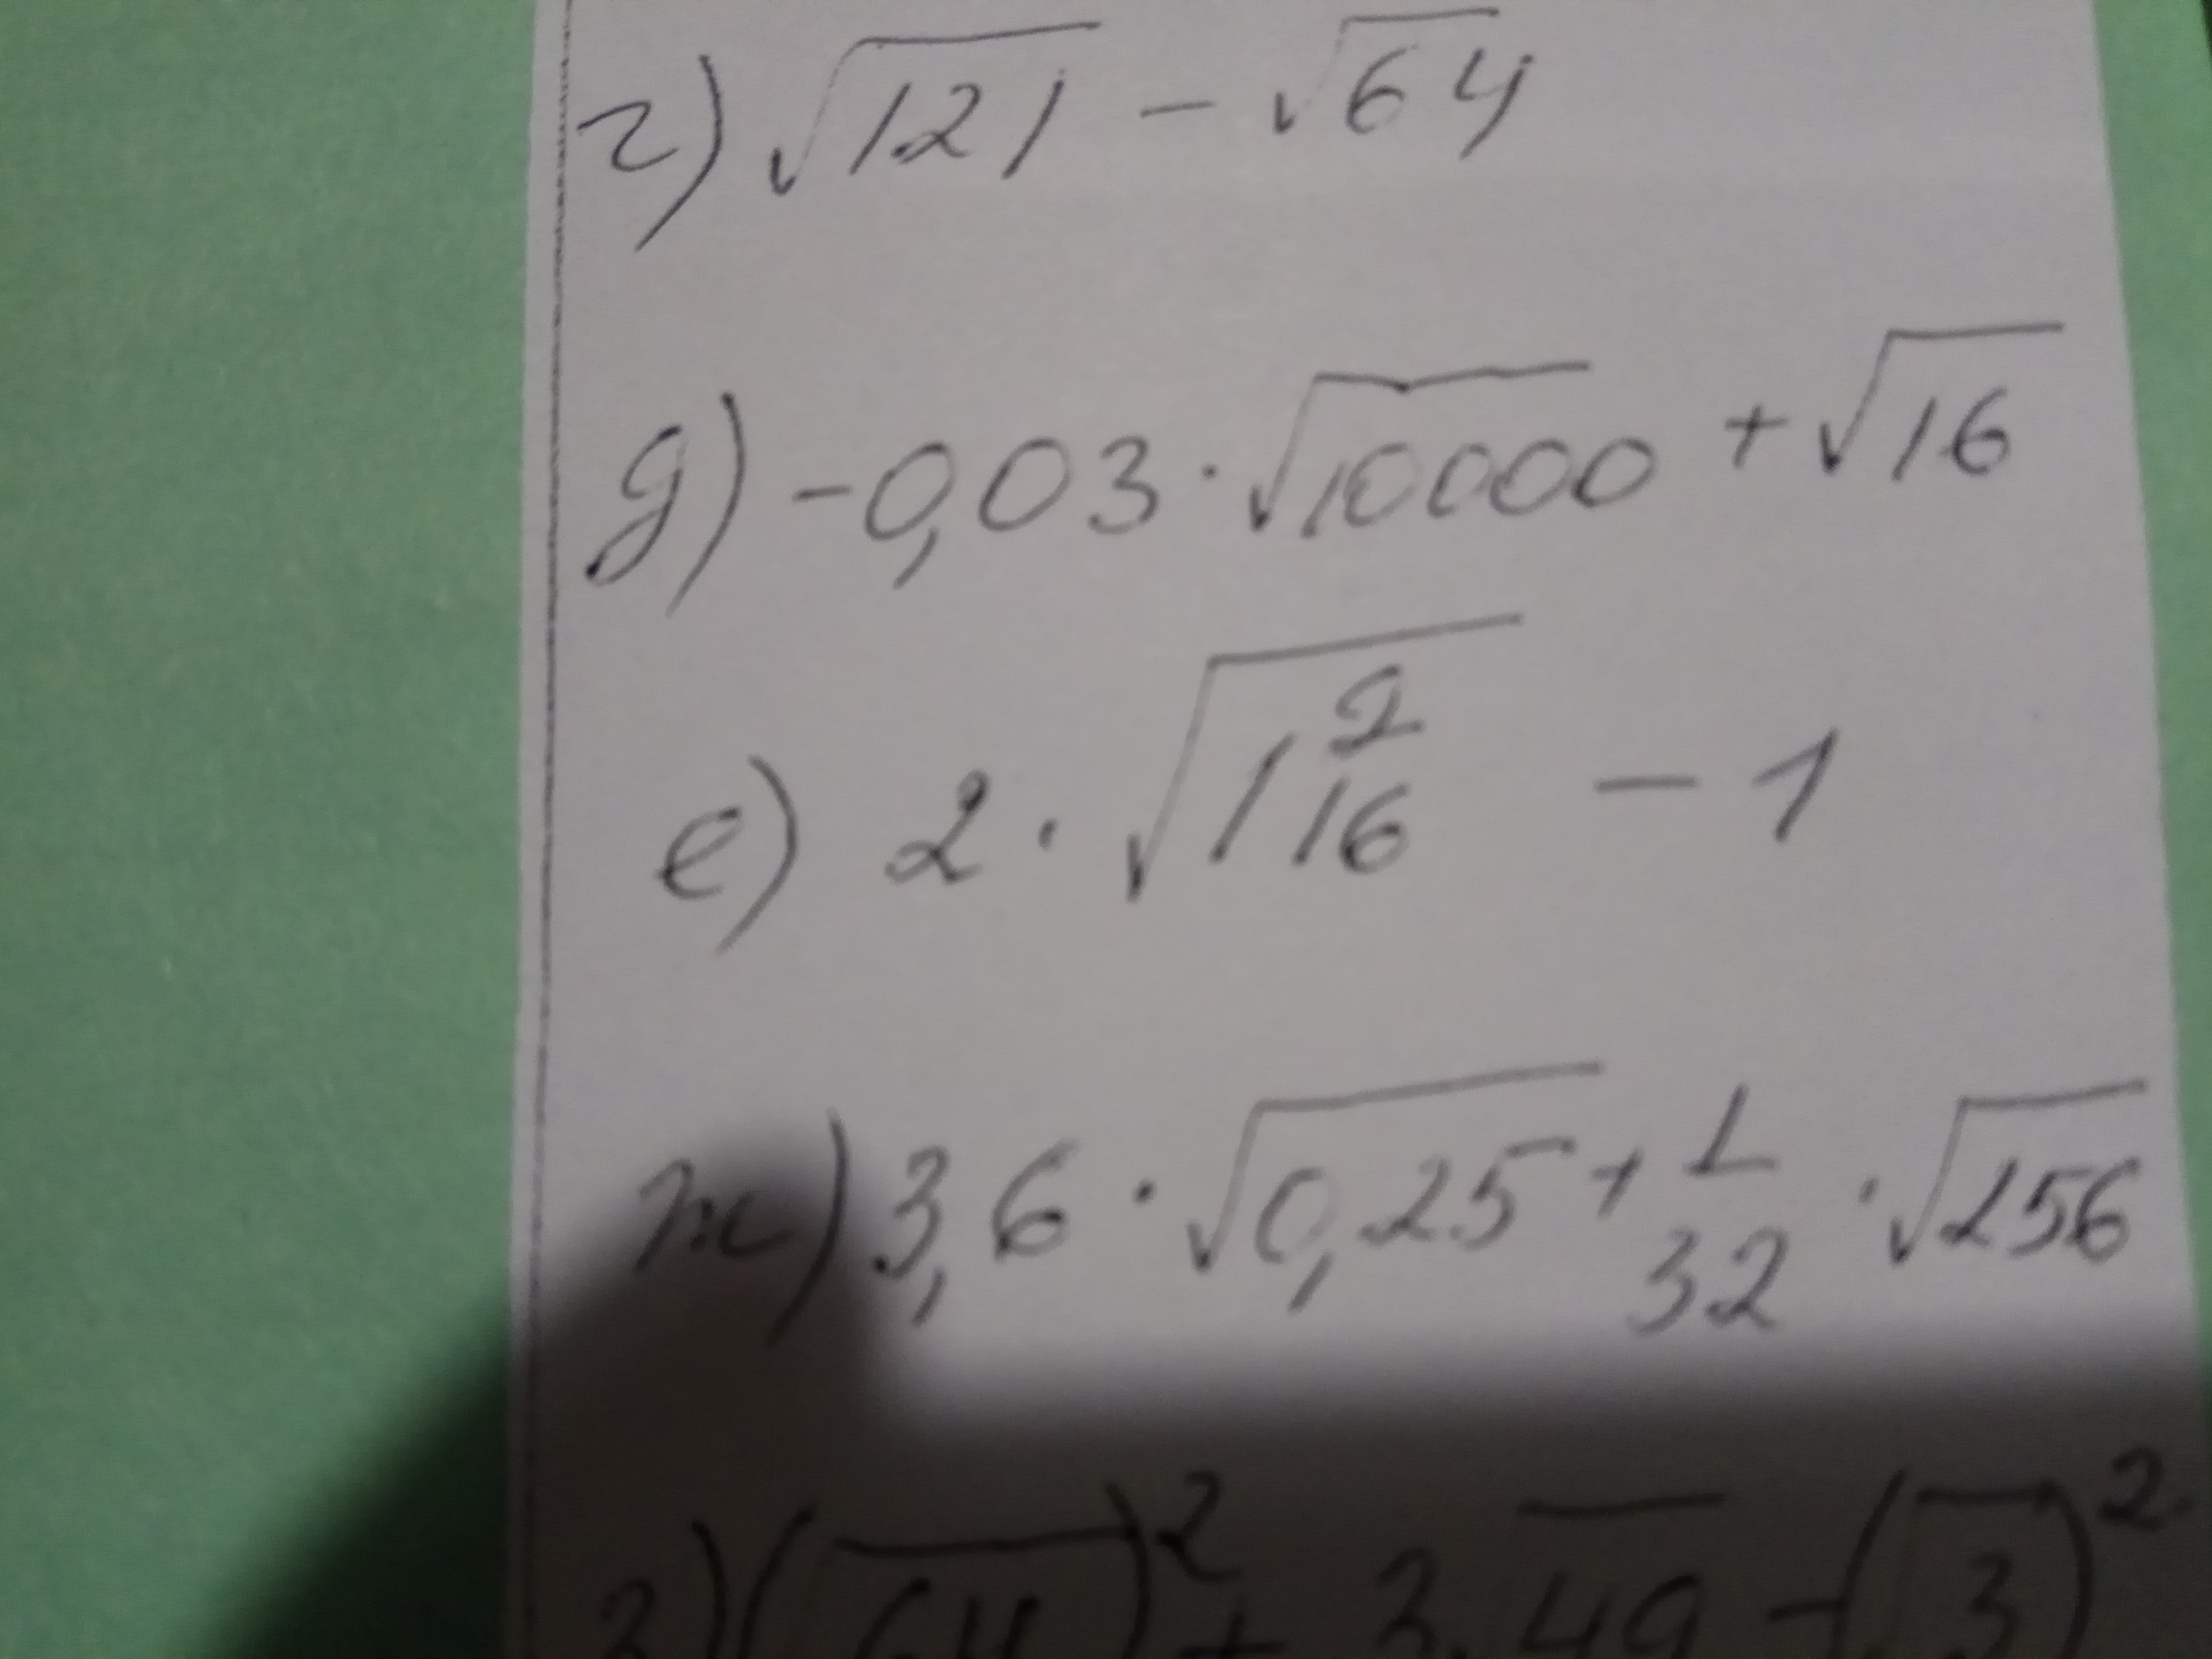 г) √121 - √64
д) -0,03 · √10000 + √16
е) 2 · √1 9/16 - 1
ж) 3,6 · √0,25 + 1/32 · √256
з) (√64)² + 3 · √49 - (√3)²